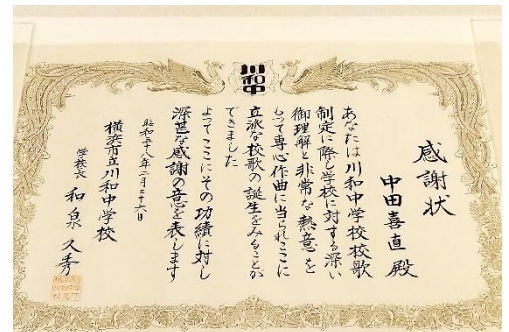 川和中
感謝状
中田喜直殿
あなたは川和中学校校歌
制定に際し学校に対する深い
御理解と非常な熱意を
もって専心作曲に当られここに
立派な校歌の誕生をみることが
できました
よってここにその功績に対し
深甚な感謝の意を表します
昭和
年二月二十六日
横浜市立川和中学校
学校長 和泉久秀